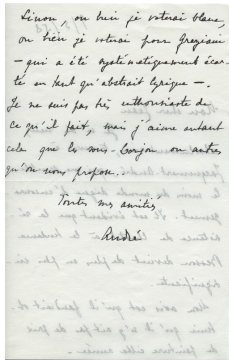 Sinon ou bien je voterai blanc,
ou bien je voterai pour Graziani
— qui a été systématiquement écar-
té en tant qu'abstrait lyrique —.
Je ne suis pas très enthousiaste de
ce qu'il fait, mais j'aime autant
cela que les sous- ou autres
qu'on nous propose..
Toutes mes amitiés
André